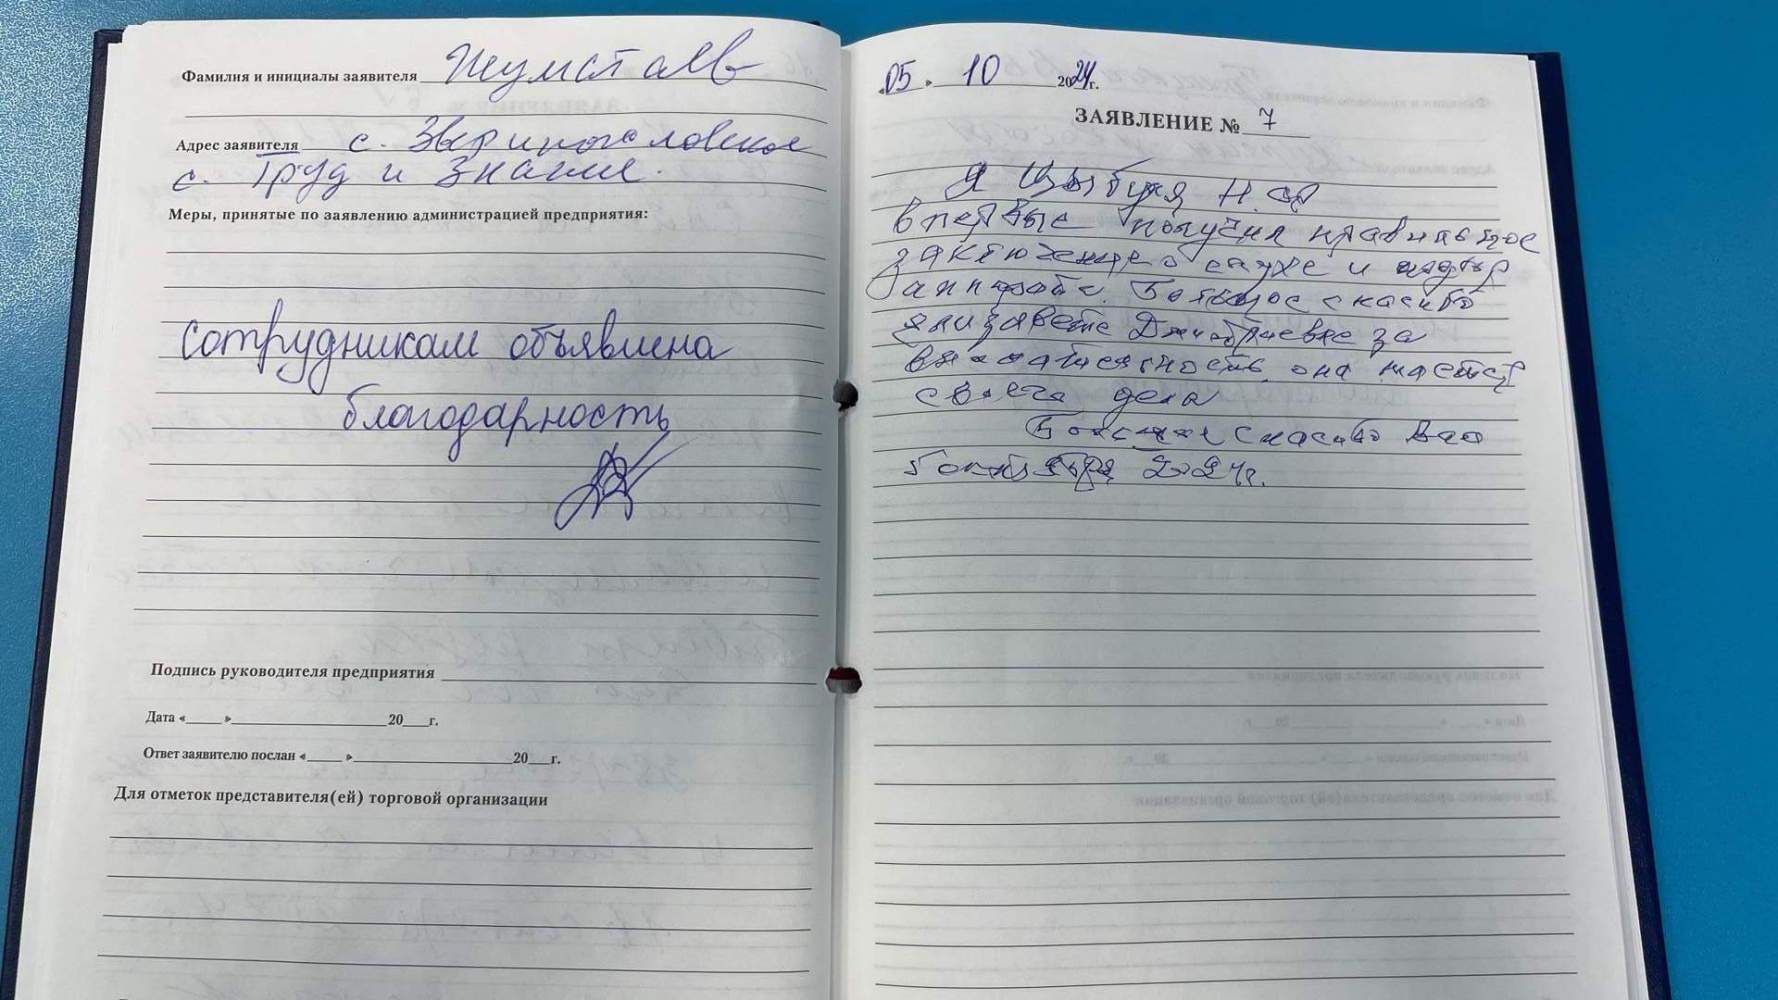 Фамилия и инициалы заявителя Жумстаев
Адрес заявителя с. Звериноголовское
с. Труд и Знание.
Меры, принятые по заявлению администрацией предприятия:
сотрудникам объявлена
благодарность
Подпись руководителя предприятия
Дата «___» ___ 20___г.
Ответ заявителю послан «___» ___ 20___г.
Для отметок представителя(ей) торговой организации
«05» 10 2024г.
ЗАЯВЛЕНИЕ № 7
Я Цыбуля Н.
впервые получил правильное
заключение о слухе и
аппарате. Большое спасибо
Елизавете за
внимательность, она мастер
своего дела
Большое спасибо Вас
5 октября 2024г.